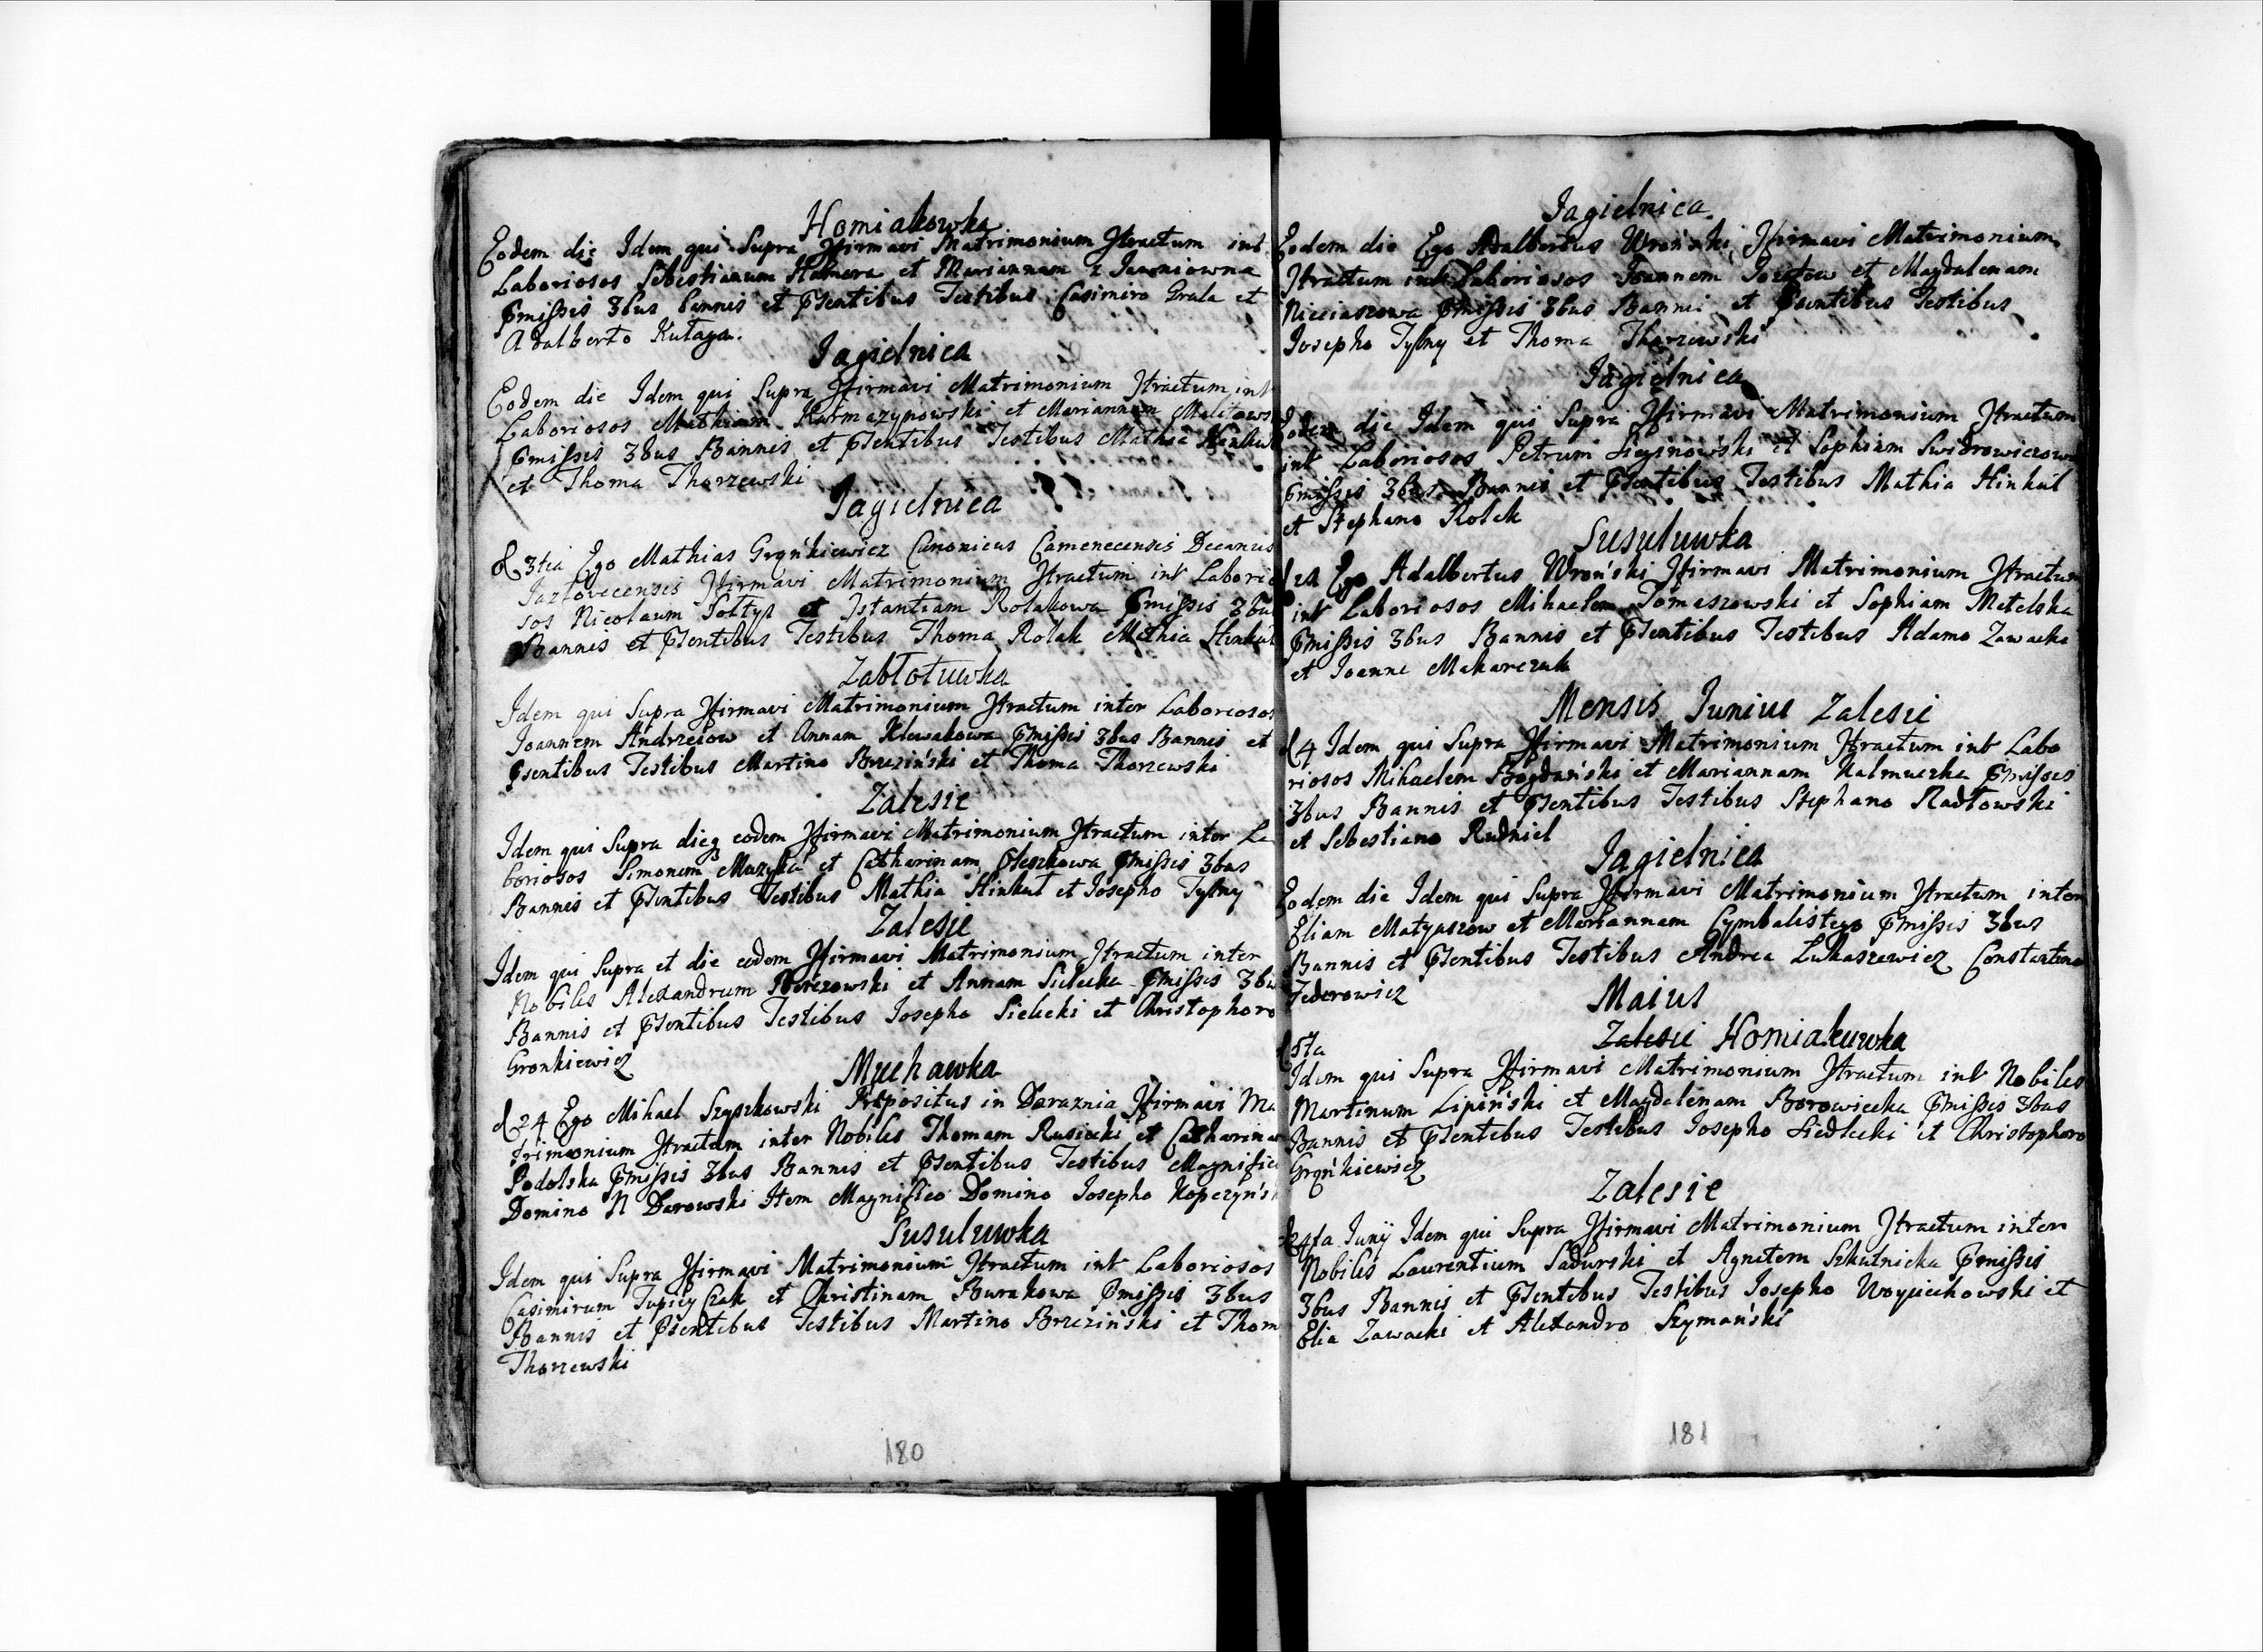 Homiakowka
Eodem die Idem qui Supra Ɉfirmavi Matrimonium Ɉtractum int
Laboriosos Sebestianum et Mariannam z
Pmissis 3bus bannis et Psentibus Testibus Casimiro Grala et
Adalberto Kutaga.
Jagielnica
Eodem die Idem qui Supra Ɉfirmavi Matrimonium Ɉtractum int
Laboriosos Mathiam Karmazynowski et Mariannam
Pmissis 3bus Bannis et Psentibus Testibus Mathia
et Thoma Thorzewski
Jagielnica
d 3tia Ego Mathias Grąńkiewicz Canonicus Camenecensis Decanus
Jazlovecensis Ɉfirmavi Matrimonium Ɉtractum int Laborio
sos Nicolaum Sołtys et Rolakowa Pmissis 3bus
Bannis et Psentibus Testibus Thoma Rolak Mathia Hinkul
Zabłotuwka
Idem qui Supra Ɉfirmavi Matrimonium Ɉtractum inter Laboriosos
Joannem Andrzeiow et Annam Klewakowa Pmissis 3bus Bannis et
Psentibus Testibus Martino Brzeziński et Thoma Thorzewski
Zalesie
Idem qui Supra die eodem Ɉfirmavi Matrimonium Ɉtractum inter La
boriosos Simonem Muzyka et Catharinam Oleszkowa Pmissis 3bus
Bannis et Psentibus Testibus Mathia Hinkul et Josepho Tylny
Zalesie
Idem qui Supra et die eodem Ɉfirmavi Matrimonium Ɉtractum inter
Nobiles Alexandrum et Annam Sielecka Pmissis 3bus
Bannis et Psentibus Testibus Josepho Sielecki et Christophoro
Gronkiewicz
Muchawka
d 24 Ego Mihael Szyszkowski Prepositus in Daraznia Ɉfirmavi Ma
trimonium Ɉtractum inter Nobiles Thomam Rusiecki et Catharinam
Podolska Pmissis 3bus Bannis et Psentibus Testibus Magnifico
Domino N Darowski Item Magnifico Domino Josepho
Susuluwka
Idem qui Supra Ɉfirmavi Matrimonium Ɉtractum int Laboriosos
Casimirum et Christinam Burakowa Pmissis 3bus
Bannis et Psentibus Testibus Martino Brzeziński et Thom
Thorzewski
180
Jagielnica
Eodem die Ego Adalbertus Wroński Ɉfirmavi Matrimonium
Ɉtractum int Laboriosos Joannem et Magdalenam
Pmissis 3bus Bannis et Psentibus Testibus
Josepho Tylny et Thoma Thorzewski
Jagielnica
Eodem die Idem qui Supra Ɉfirmavi Matrimonium Ɉtractum
int Laboriosos Petrum et Sophiam
Pmissis 3bus Bannis et Psentibus Testibus Mathia Hinkul
et Stephano Rolak
Susuluwka
Ego Adalbertus Wroński Ɉfirmavi Matrimonium Ɉtractum
int Laboriosos Mihaelem Tomaszowski et Sophiam Metelska
Pmissis 3bus Bannis et Psentibus Testibus Adamo Zawacki
et Joanne Makarczuk
Mensis Junius Zalesie
d 4 Idem qui Supra Ɉfirmavi Matrimonium Ɉtractum int Labo
riosos Mihaelem Bogdański et Mariannam Kalmuczka Pmissis
3bus Bannis et Psentibus Testibus Stephano Radłowski
et Sebestiano Rudniel
Jagielnica
Eodem die Idem qui Supra Ɉfirmavi Matrimonium Ɉtractum inter
Eliam Matyaszow et Mariannam Cymbalistego Pmissis 3bus
Bannis et Psentibus Testibus Andrea Lukaszewicz Constantino
Federowicz
Maius
Zalesie Homiakuwka
d 5ta
Idem qui Supra Ɉfirmavi Matrimonium Ɉtractum int Nobiles
Martinum Lipiński et Magdalenam Borowiecka Pmissis 3bus
Bannis et Psentibus Testibus Josepho Siedlecki et Christophoro
Grąńkiewicz
Zalesie
d 24ta Junij Idem qui Supra Ɉfirmavi Matrimonium Ɉtractum inter
Nobiles Laurentium Sadurski et Agnetem Szkutnicka Pmissis
3bus Bannis et Psentibus Testibus Josepho Woyciechowski et
Elia Zawacki et Alexandro Szymański
181